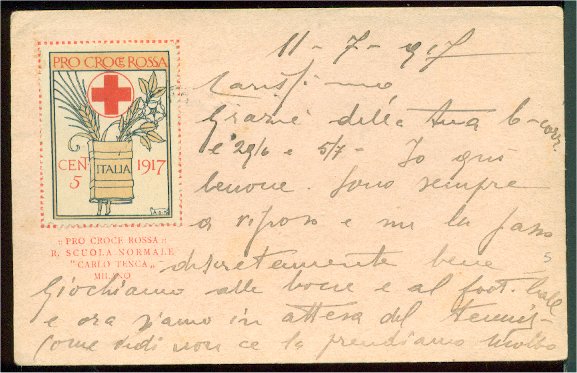 PRO CROCE ROSSA
CENT
5
ITALIA
1917
" PRO CROCE ROSSA "
R. SCUOLA NORMALE
"CARLO TENCA"
MILANO
11-7-917
Carissimo,
Grazie della tua
29/6 e 5/7 - Io qui
benone. Sono sempre
a riposo e me la passo
discretamente bene
Giochiamo alle bocce e al foot-ball
e ora siamo in attesa del tennis -
Come vedi non ce la prendiamo molto
5